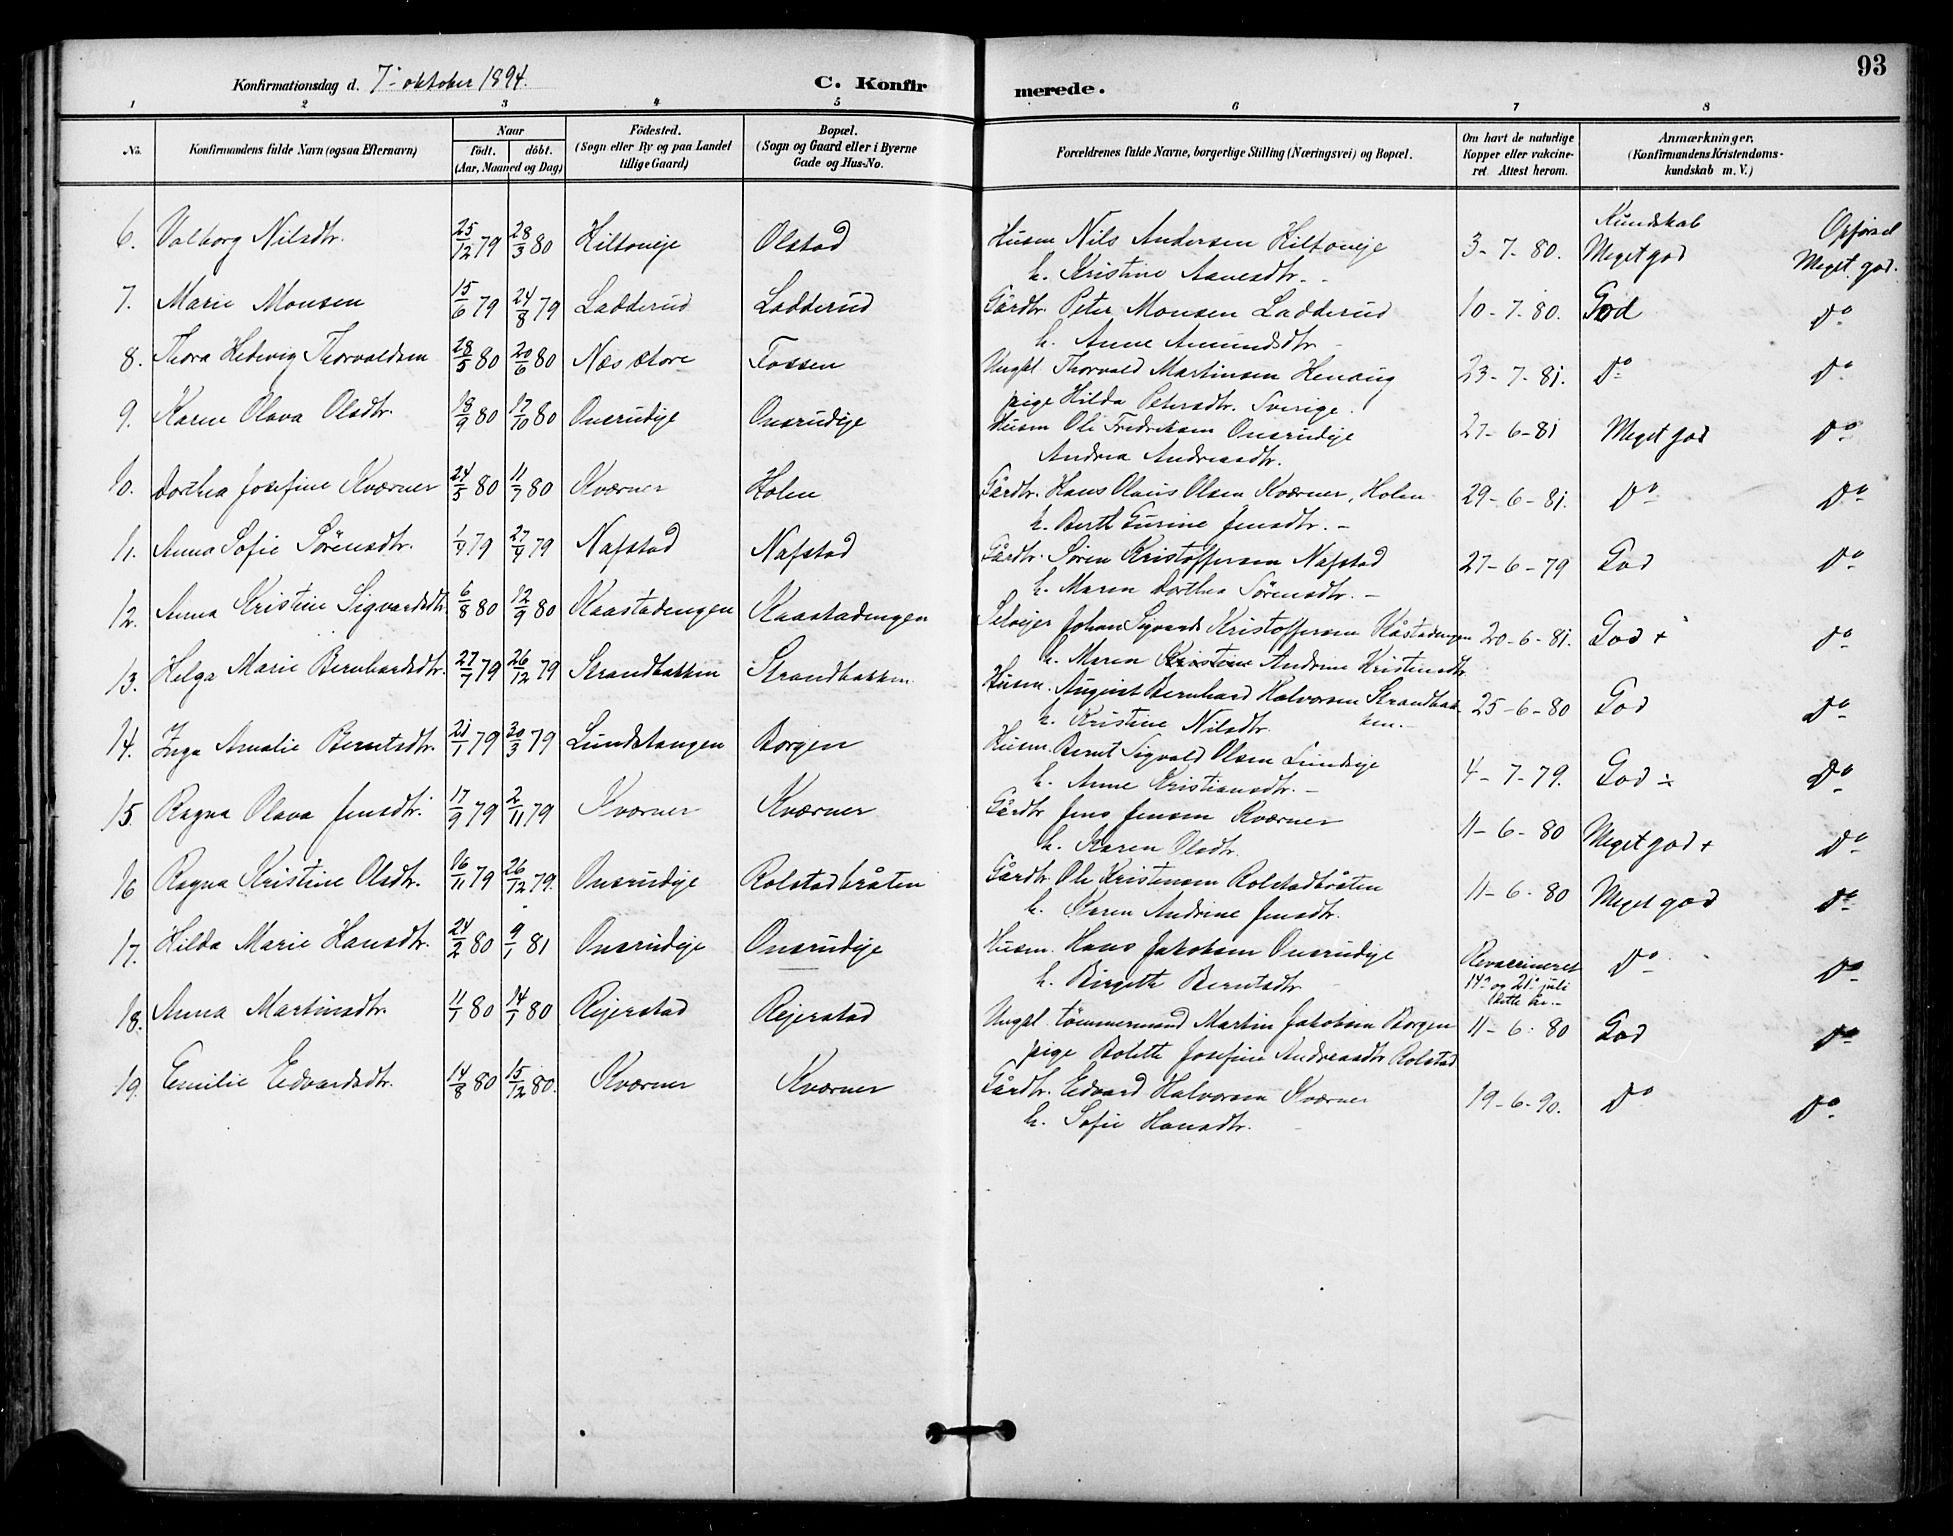 93
Konfirmationsdag d. 7- oktober 1894.
C. Konfirmerede.
1 2 3 4 5 6 7 8
No.
Konfirmandens fulde Navn (ogsaa Efternavn)
Naar
födt. döbt.
(Aar, Maaned og Dag)
Födested.
(Sogn eller By og paa Landet
tillige Gaard)
Bopæl.
(Sogn og Gaard eller i Byerne
Gade og Hus-No.
Forældrenes fulde Navne, borgerlige Stilling (Næringsvei) og Bopæl.
Om havt de naturlige
Kopper eller vakcine-
ret Attest herom.
Anmærkninger,
(Konfirmandens Kristendoms-
kundskab m. V.)
Kundskab Opførsel
6. Valborg Nilsdtr. 25/12 79 28/3 80 Hiltoneje Olstad Husm Nils Andersen Hiltoneje 3-7-80. Meget god Meget god.
h. Kristine Aanesdtr.
7. Marie Monsen 15/6 79 24/8 79 Ladderud Ladderud Gårdbr. Peter Monsen Ladderud 10-7-80. God Do
h. Anne Amundsdtr
8. Thora Hedevig Thorvaldsen 28/5 80 20/6 80 Næs store Fossen Ungkl. Thorvald Martinsen Henaug 23-7-81. Do Do
pige Hilda Petersdtr. Sverige.
9. Karen Olava Olsdtr. 18/9 80 17/10 80 Onsrudeje Onsrudeje Husm Ole Fredriksen Onsrudeje 27-6-81 Meget god Do
Andrea Andreasdtr.
10. Dorthea Josefine Kværner 24/5 80 11/7 80 Kværner Holen Gårdbr. Hans Olaus Olsen Kværner, Holen 29-6-81. Do Do
h. Berth Gurine Jensdtr. -
11. Anna Sofie Sörensdtr. 79 27/4 79 Nafstad Nafstad Gårdbr. Sören Kristoffersen Nafstad 27-6-79 God Do
h. Maren Dorthea Sörensdtr. -
12. Anna Kristine Sigvardsdtr. 6/8 80 12/9 80 Kaastadengen Kaastadengen Selvejer Johan Sigvards Kristoffersen Kåstadengen 20-6-81. God + Do
h. Maren Kristine Andrine Kristensdtr
13. Helga Marie Bernhardsdtr. 27/7 79 26/12 79 Strandbakken Strandbakken Husm. August Bernhard Halvorsen Strandbak 25-6-80 God Do
h. Kristine Nilsdtr. ken.
14. Inga Amalie Berntsdtr. 21/1 79 30/3 79 Lundstangen Borgen Husm. Bernt Sigvald Olsen Lundeje 4-7-79. God ÷ Do
h. Anne Kristiansdtr. -
15. Ragna Olava Jensdtr. 17/9 79 2/11 79 Kværner Kværner Gårdbr Jens Jensen Kværner 11-6-80 Meget god + Do
h. Karen Olsdtr.
16 Ragna Kristine Olsdtr. 16/11 79 26/12 79. Onsrudeje Rolstadbråten Gårdbr. Ole Kristensen Rolstadbråten 11-6-80 Meget god Do
h. Karen Andrine Jensdtr.
17. Hilda Marie Hansdtr. 24/2 80 9/1 81 Onsrudeje Onsrudeje Husm. Hans Jakobsen Onsrudeje Revaccineret Do Do
h. Birgitte Berntsdtr. 14- og 21- juli
dette år.-
18. Anna Martinsdtr. 11/1 80 14/1 80 Rejerstad Rejerstad Ungkl. tömmermand Martin Jakobsen Borgen 11-6-80 God Do
pige Bolette Josefine Andreasdtr Rolstad
19. Emilie Edvardsdtr. 14/8 80 15/12 80. Kværner Kværner Gårdbr. Edvard Halvorsen Kværner 19-6-90. Do Do
h. Sofie Hansdtr.